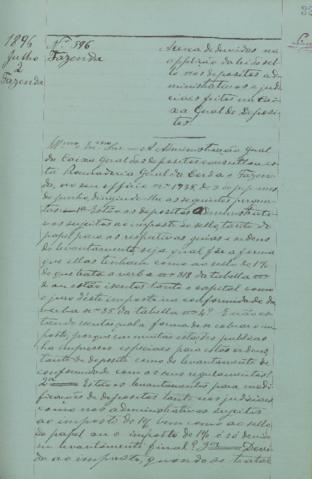 1896
Julho
2
Fazenda
Nº 596
Fazenda
Acerca de duvidas na
applicação da lei do sel-
lo nos depositos ad-
ministrativos e judi-
ciaes feitos na Cai-
xa Geral de Deposi-
tos.
Illmo Exmo Snr — A Administração Geral
da Caixa Geral de depositos consultou es-
ta Procuradoria Geral da Corôa e Fazen-
da, no seu officio nº
de junho, dirigindo-lhe as seguintes pergun-
tas — 1ª Estão os depositos administrati-
vos sujeitos ao imposto do sello, tanto do
papel para as respectivas guias e ordens
de levantamento, seja qual fôr a forma
que ellas tenham como ao sello de 1%
de que trata a verba nº da tabella nº
e ou estão isentos tanto o capital como
o juro d'este imposto na conformidade da
verba nº da tabella nº 4? E não es-
tando isentos qual a forma de se cobrar o im-
posto, porque em muitas estações publicas
ha impressos especiaes para estas ordens,
tanto de deposito como de levantamento de
conformidade com os seus regulamentos?
2ª — Estão os levantamentos para modi-
ficações de depositos tanto nos judiciaes
como nos administrativos sujeitos
ao imposto de 1% bem como ao sello
do papel ou o imposto de 1% é só devi-
do no levantamento final? 3ª — Devi-
do ao imposto, quando se tratar